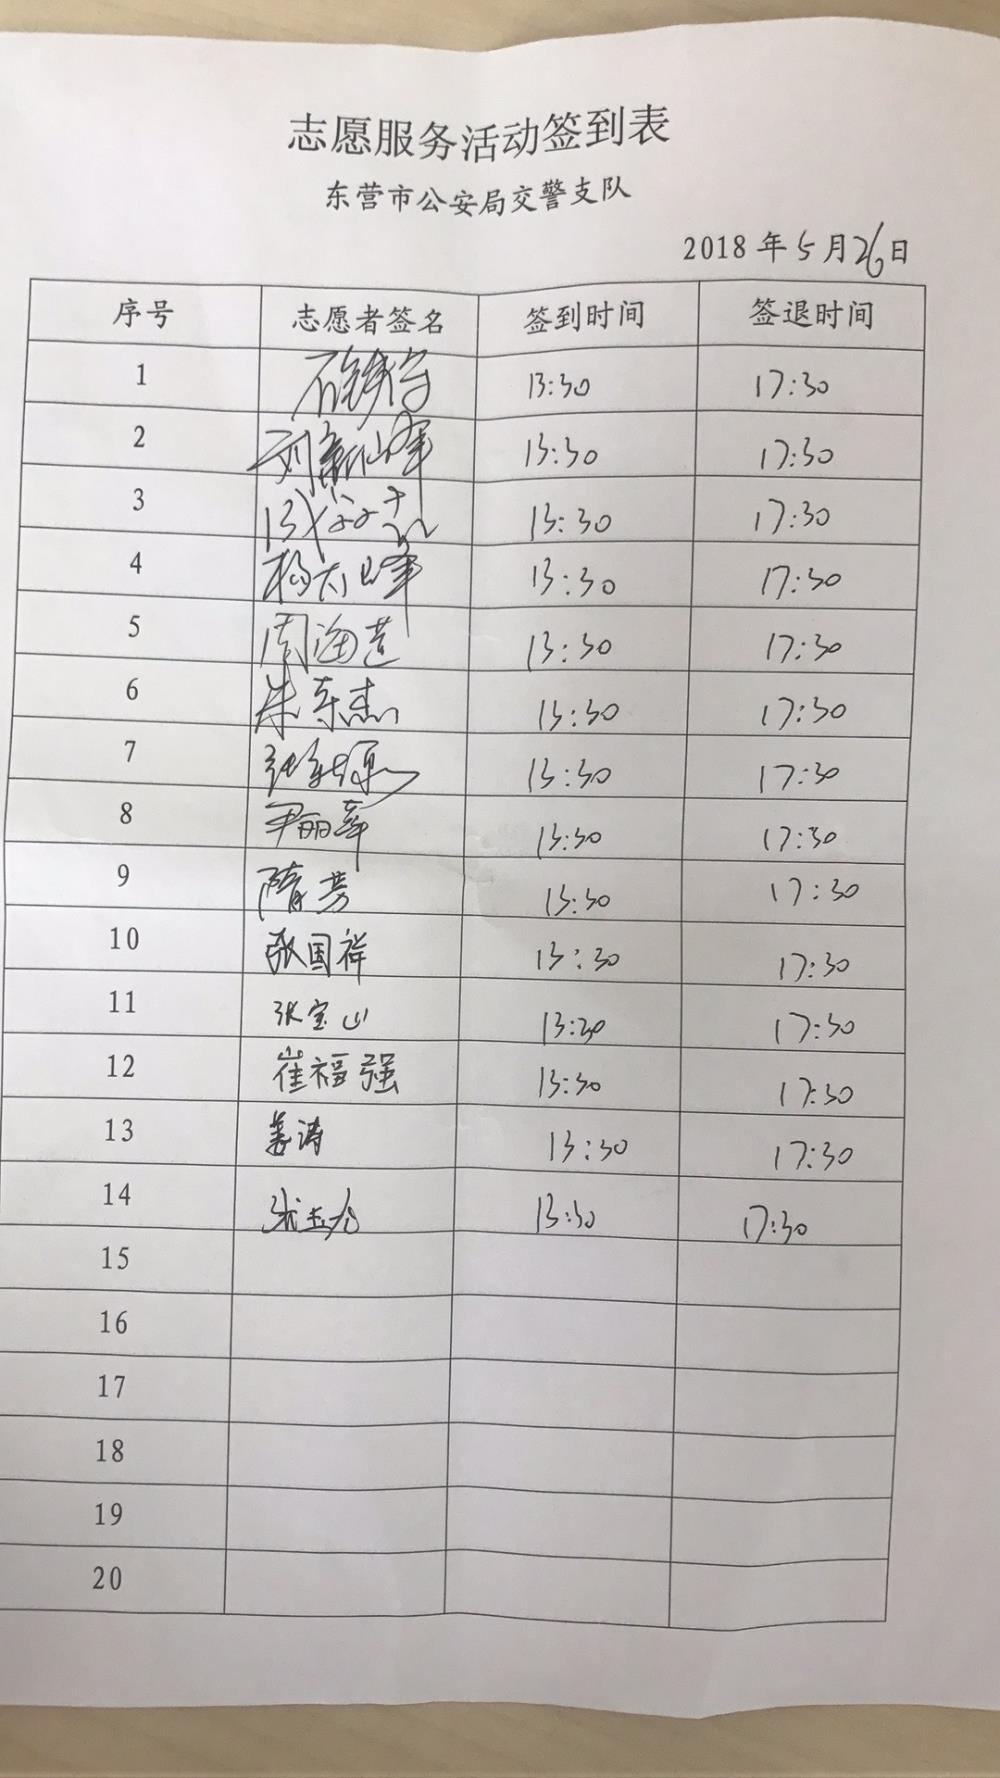 志愿服务活动签到表
东营市公安局交警支队
2018年5月26日
序号 志愿者签名 签到时间 签退时间
1 13:30 17:30
2 13:30 17:30
3 13:30 17:30
4 杨太峰 13:30 17:30
5 周海莲 13:30 17:30
6 朱东杰 13:30 17:30
7 13:30 17:30
8 尹丽萍 13:30 17:30
9 隋芳 13:30 17:30
10 张国祥 13:30 17:30
11 张宝山 13:30 17:30
12 崔福强 13:30 17:30
13 姜涛 13:30 17:30
14 13:30 17:30
15
16
17
18
19
20